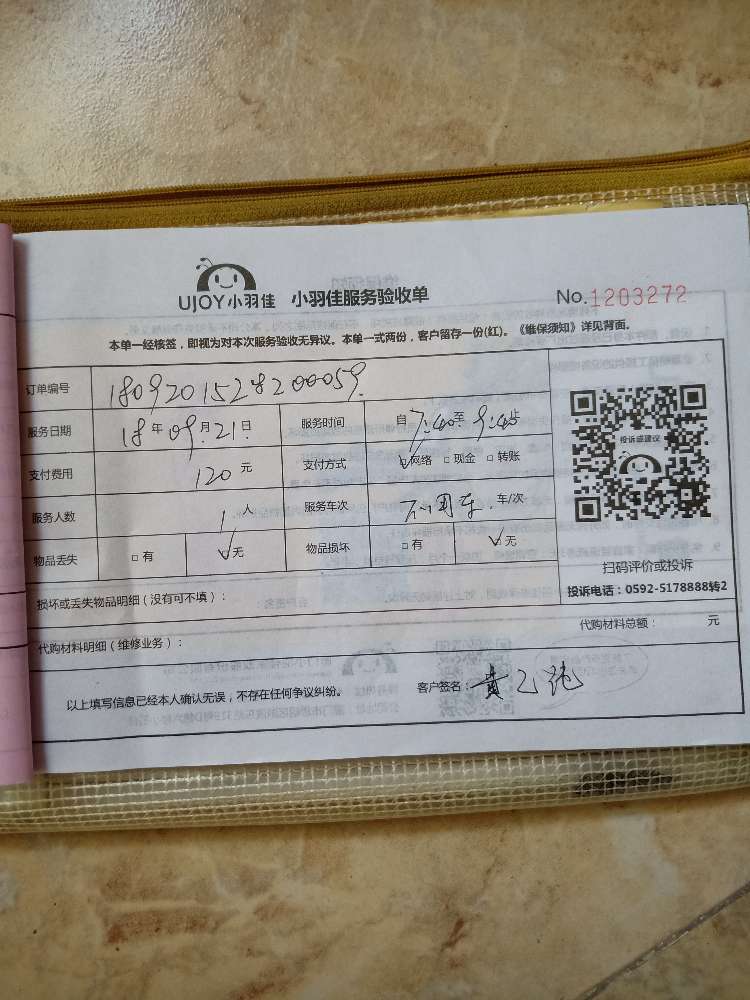 UJOY小羽佳 小羽佳服务验收单 No.1203272
本单一经核签，即视为对本次服务验收无异议。本单一式两份，客户留存一份(红)。《维保须知》详见背面。
订单编号 180920152820005​9
服务日期 18年09月21日 服务时间 自7:40至9:45止
支付费用 120元 支付方式 ☑网络 □现金 □转账
服务人数 1人 服务车次 不用车.车/次
物品丢失 □有 ☑无 物品损坏 □有 ☑无
投诉或建议
扫码评价或投诉
投诉电话：0592-5178888转2
损坏或丢失物品明细（没有可不填）：
代购材料明细（维修业务）： 代购材料总额： 元
以上填写信息已经本人确认无误，不存在任何争议纠纷。 客户签名：黄